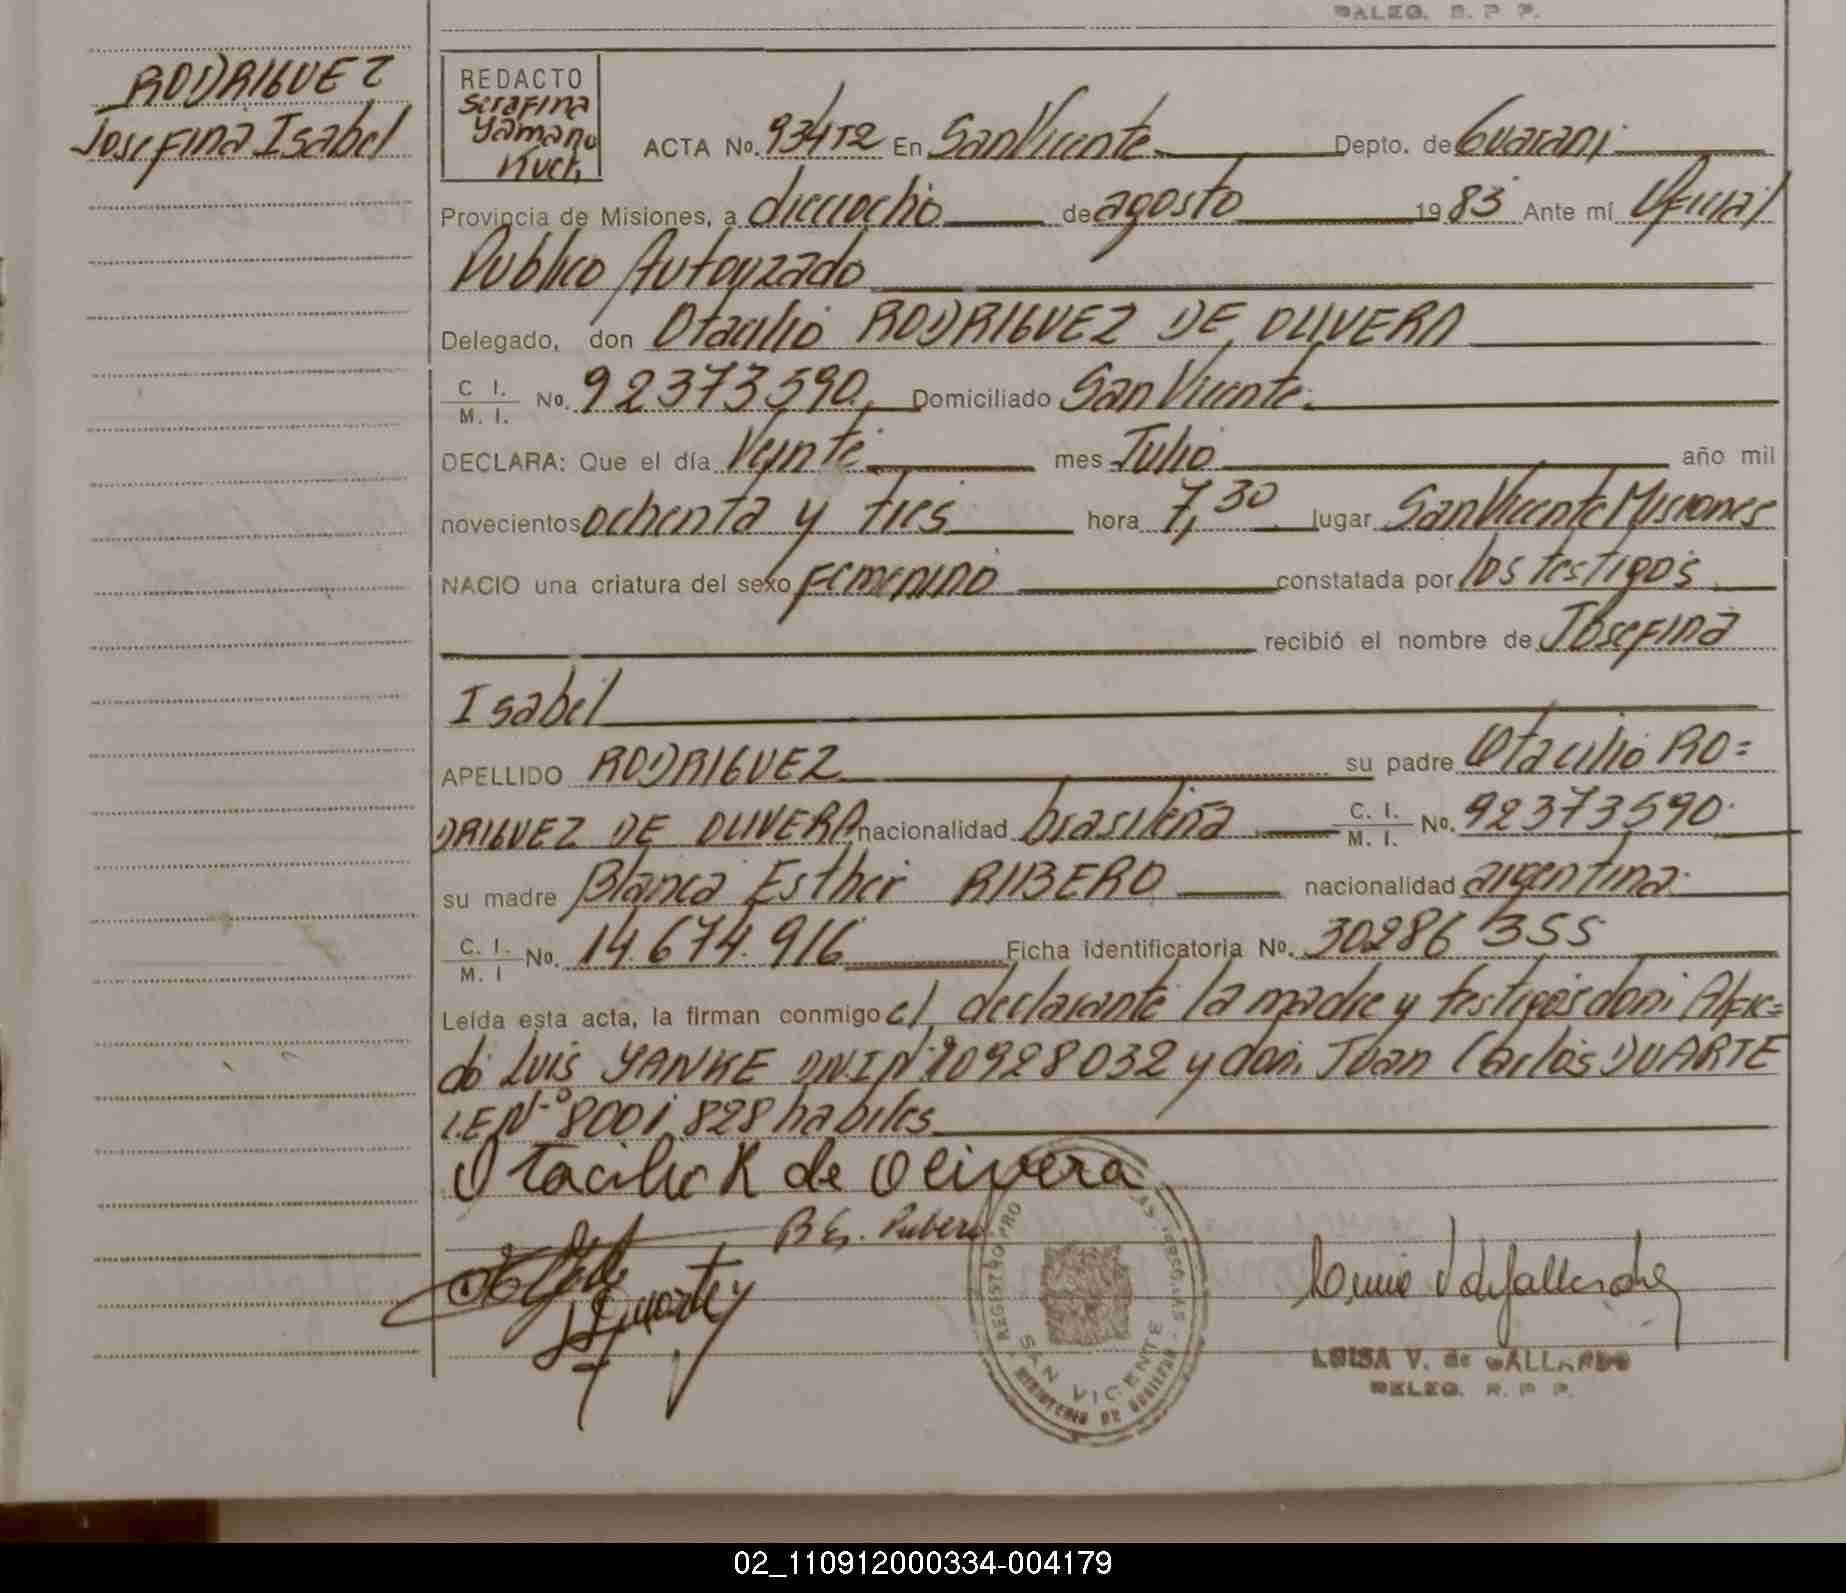 DELEG. R. P. P.
RODRIGUEZ
Josefina Isabel
REDACTO
Serafina
Yamano
Kuch
ACTA No. 934T2 En San Vicente Depto. de Guarani
Provincia de Misiones, a dieciocho de agosto 1983 Ante mí Oficial
Publico Autorizado
Delegado, don Otacilio RODRIGUEZ DE OLIVERA
C. I. / M. I. No. 92373590 Domiciliado San Vicente
DECLARA: Que el día Veinte mes Julio año mil
novecientos ochenta y tres hora 7,30 lugar San Vicente Misiones
NACIO una criatura del sexo Femenino constatada por los testigos
recibió el nombre de Josefina
Isabel
APELLIDO RODRIGUEZ su padre Otacilio RO=
DRIGUEZ DE OLIVERA nacionalidad brasileña C. I. / M. I. No. 92373590
su madre Blanca Esther RIBERO nacionalidad argentina
C. I. / M. I No. 14.674.916 Ficha identificatoria No. 30286355
Leída esta acta, la firman conmigo el declarante la madre y testigos don: Alfre=
do Luis YANKE DNI Nº 10928032 y don: Juan Carlos DUARTE
L.E Nº 8001.828 habiles
Otacilio R de Olivera
B E. Ribero
Duarte
REGISTRO PRO
SAN VICENTE
MINISTERIO DE GOBIERNO
LUISA V. de GALLARDO
DELEG. R. P. P.
02_110912000334-004179